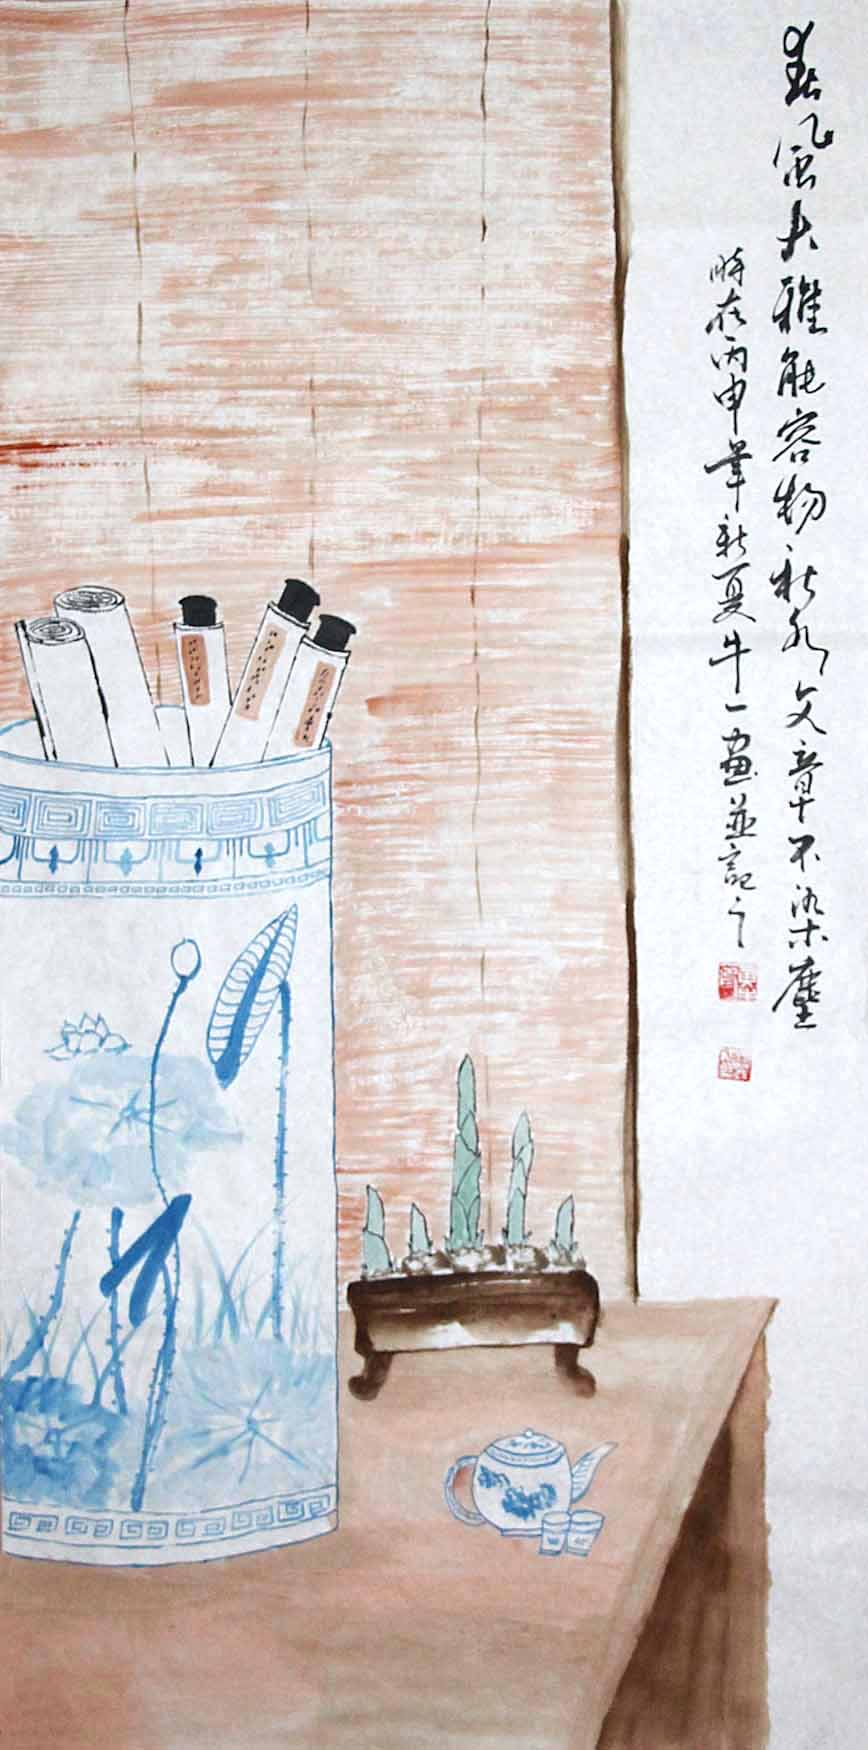 春风大雅能容物秋水文章不染尘
时在丙申年秋夏牛一画并记之